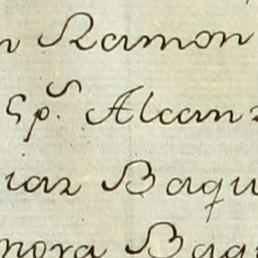 n Ramon
Sp.s Alcanz
iaz Baqu
nora Baqu